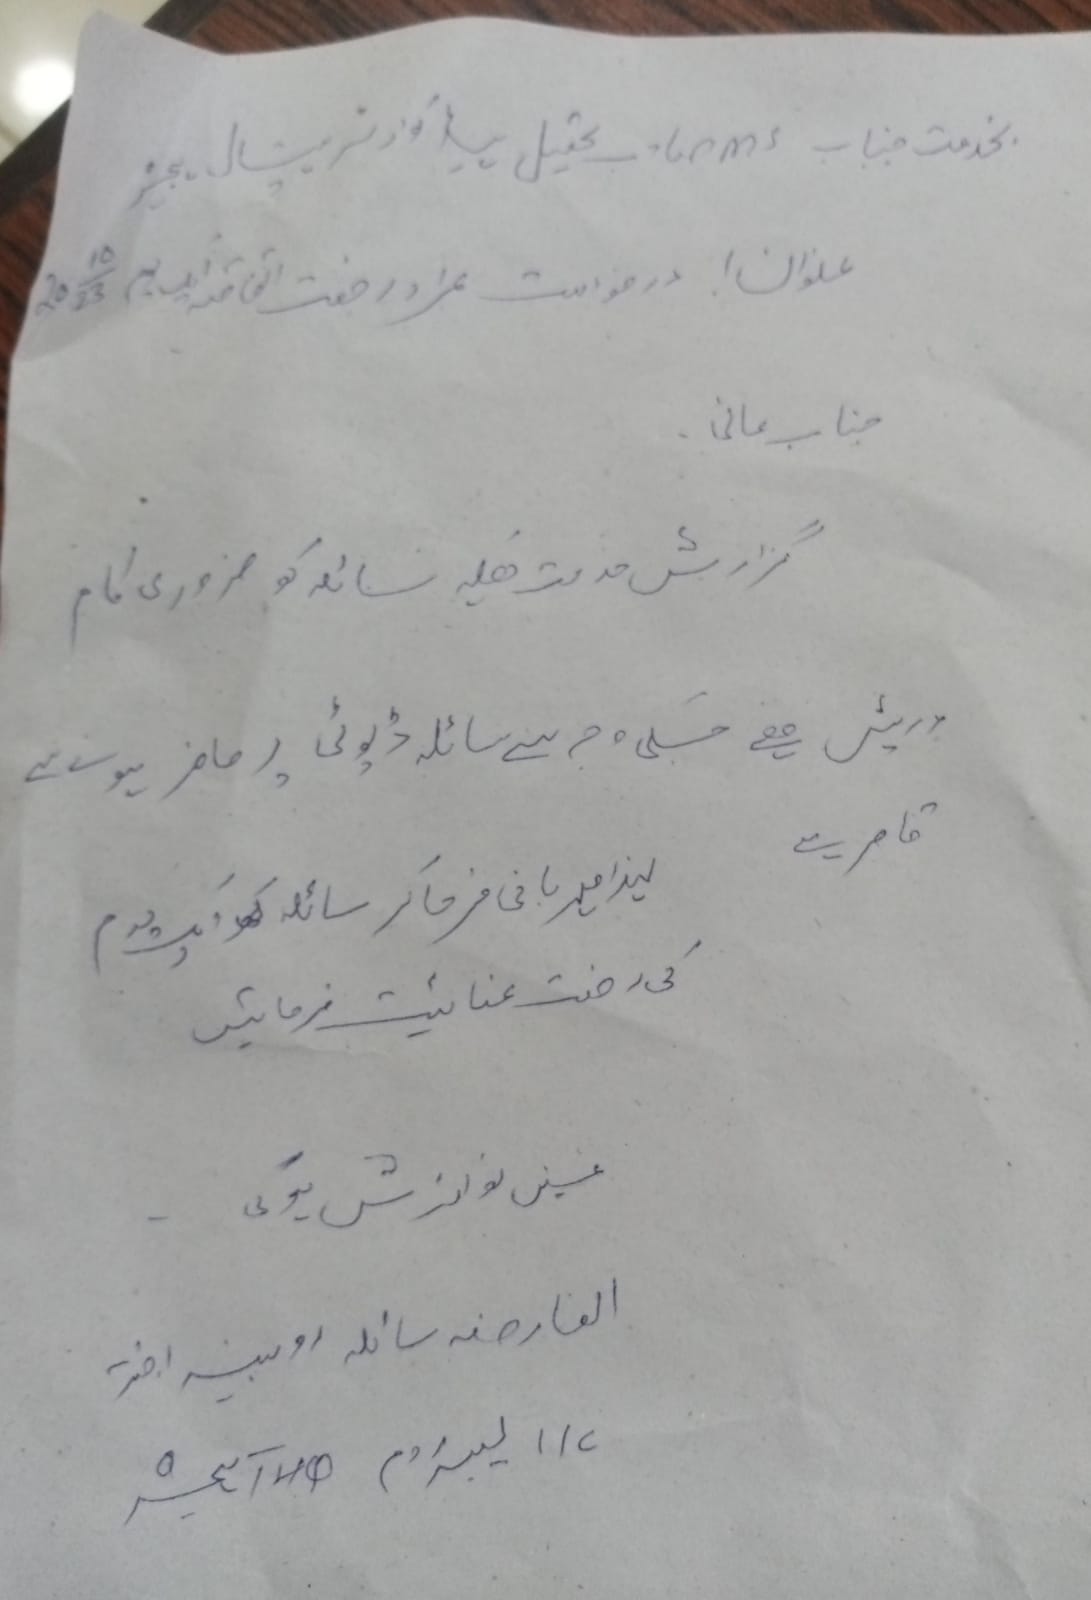 بخدمت جناب AMS صاحب تحصیل ہیڈ کوارٹر ہسپتال
عنوان! درخواست بمراد رخصت اتفاقیہ ایک یوم 20 10/23
جناب عالی۔
گزارش خدمت ھیکہ سائلہ کو ضروری کام
درپیش ھے جسکی وجہ سے سائلہ ڈیوٹی پر حاضر ہونے سے
قاصر ہے لہذا مہربانی فرما کر سائلہ کو ایک یوم
کی رخصت عنائیت فرمائیں
عین نوازش ہوگی ۔
العارضہ سائلہ روبینہ اختر
I/C لیبر روم THQ